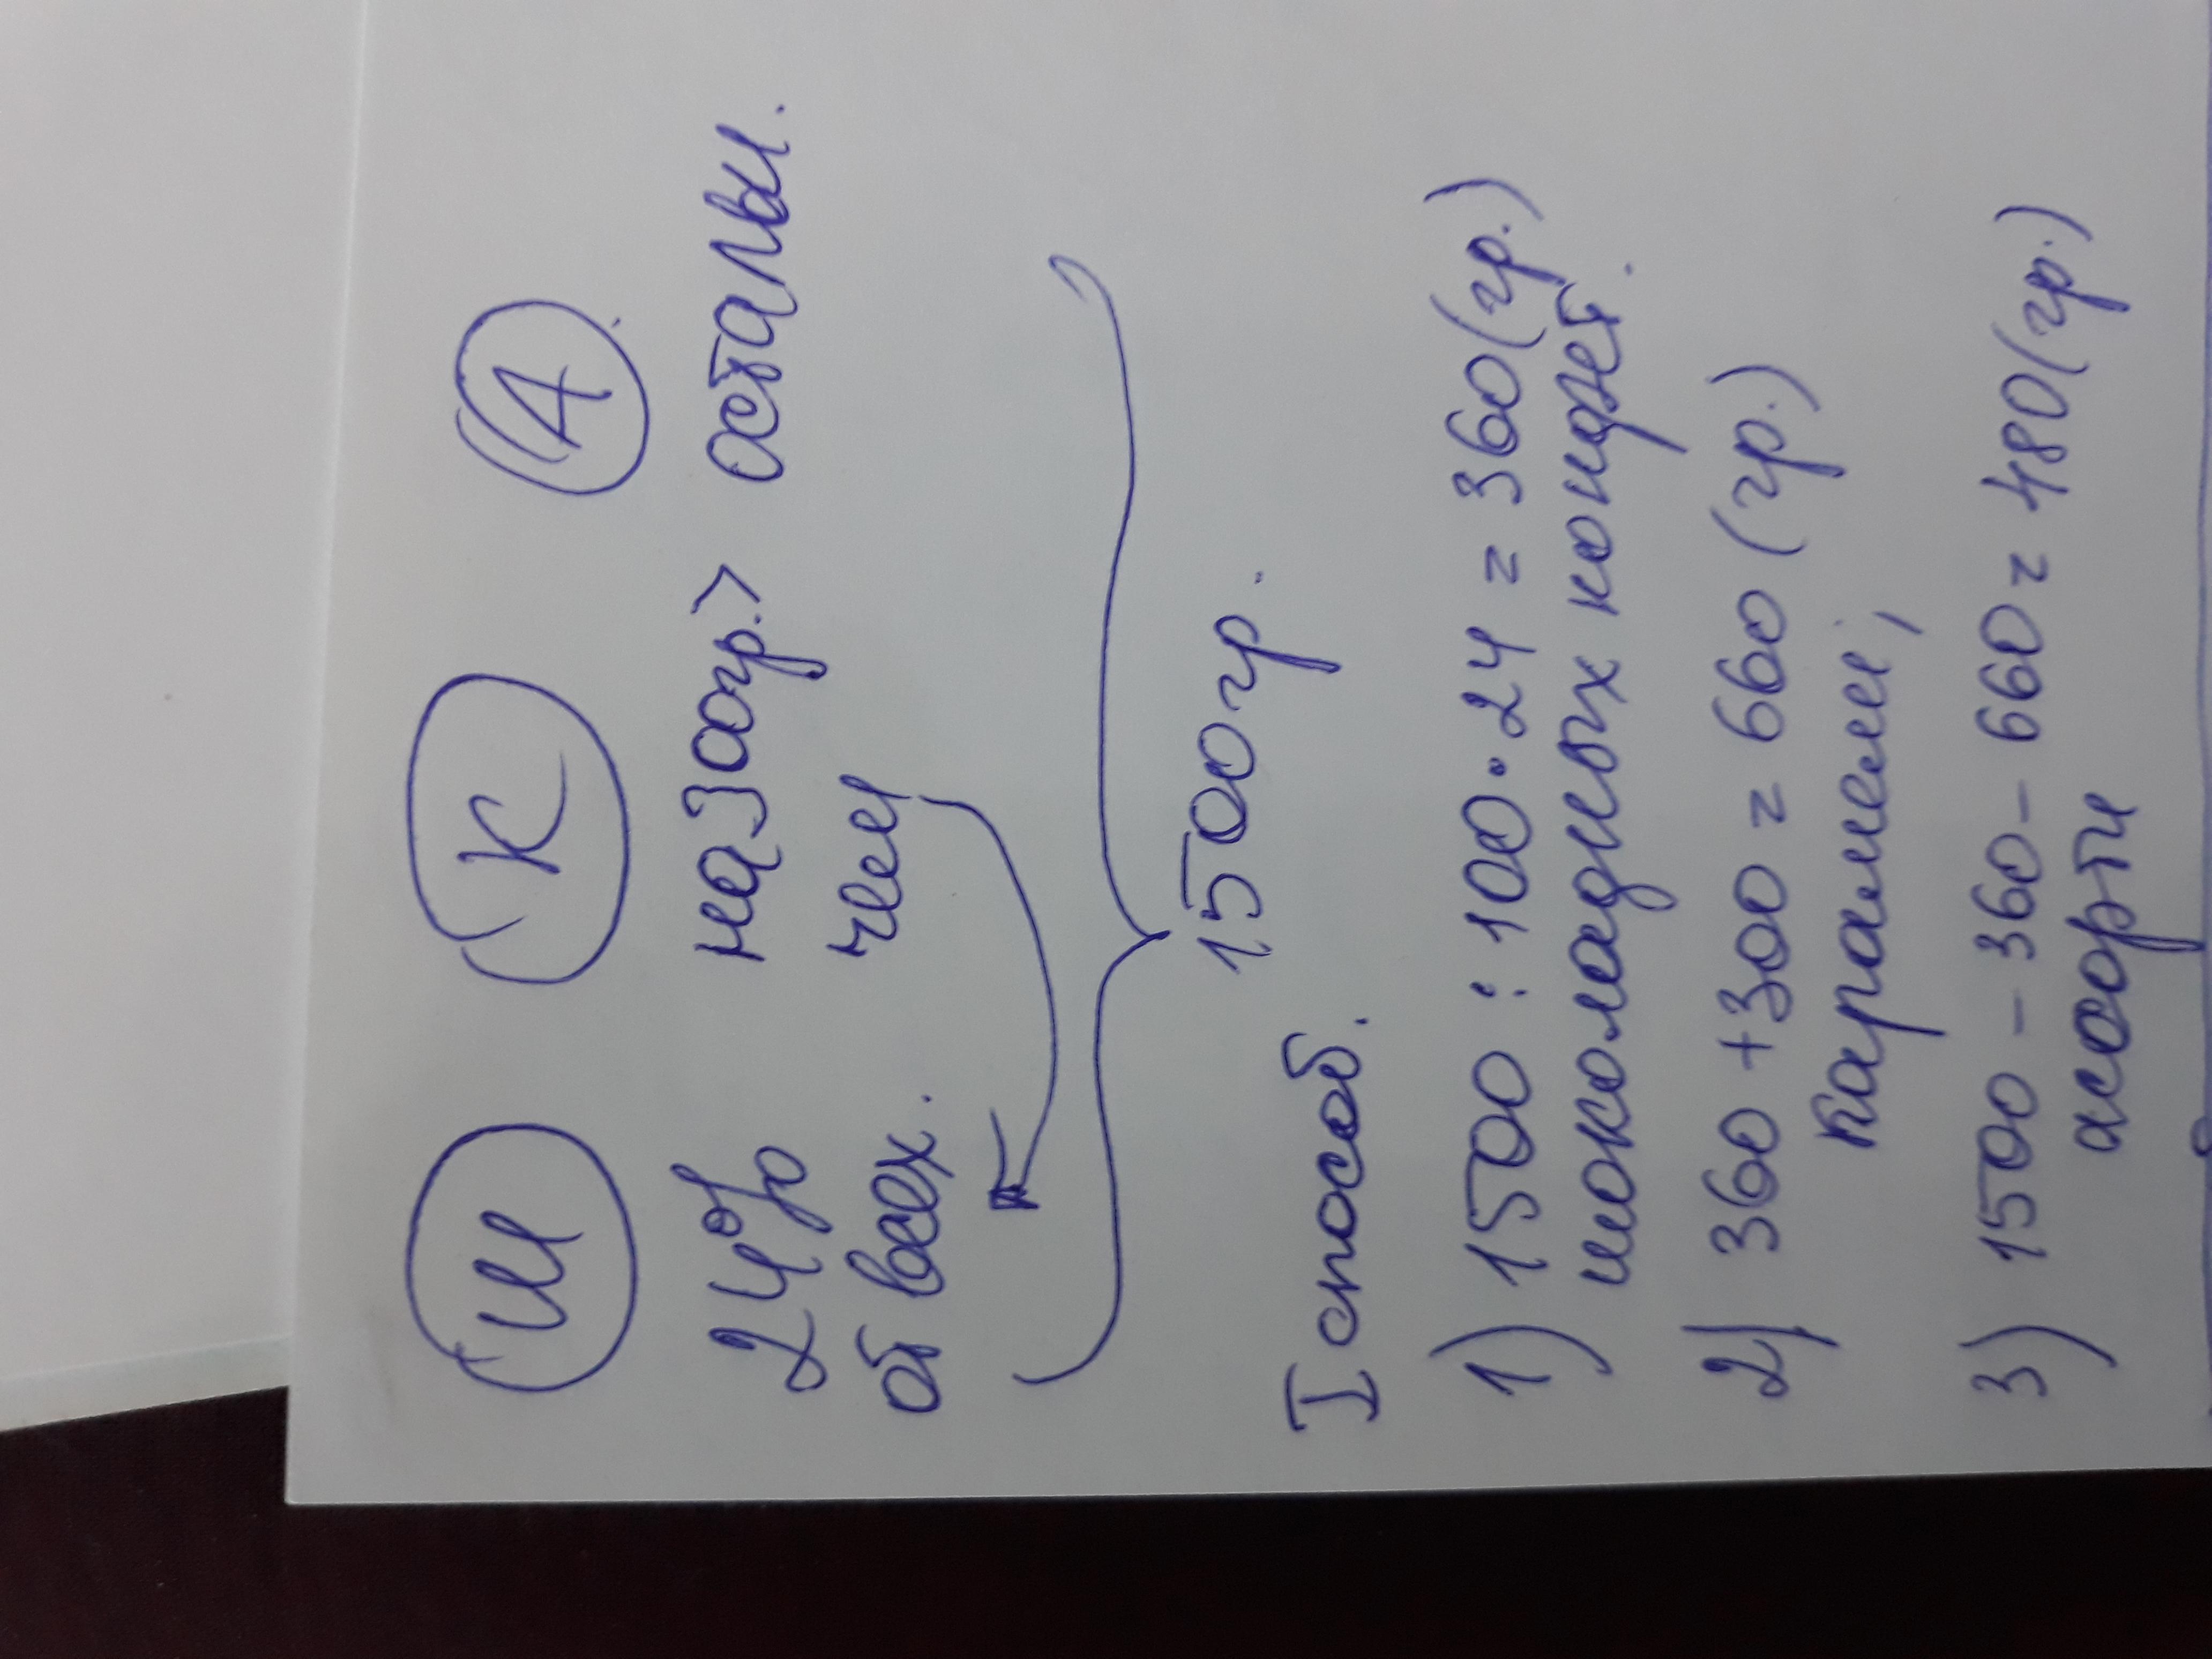 Ш К А
24% на 300гр.> остальн.
от всех. чем
1500гр.
I способ.
1) 1500 : 100 • 24 = 360(гр.)
шоколадных конфет.
2) 360 + 300 = 660 (гр.)
карамели;
3) 1500 - 360 - 660 = 480(гр.)
асорти